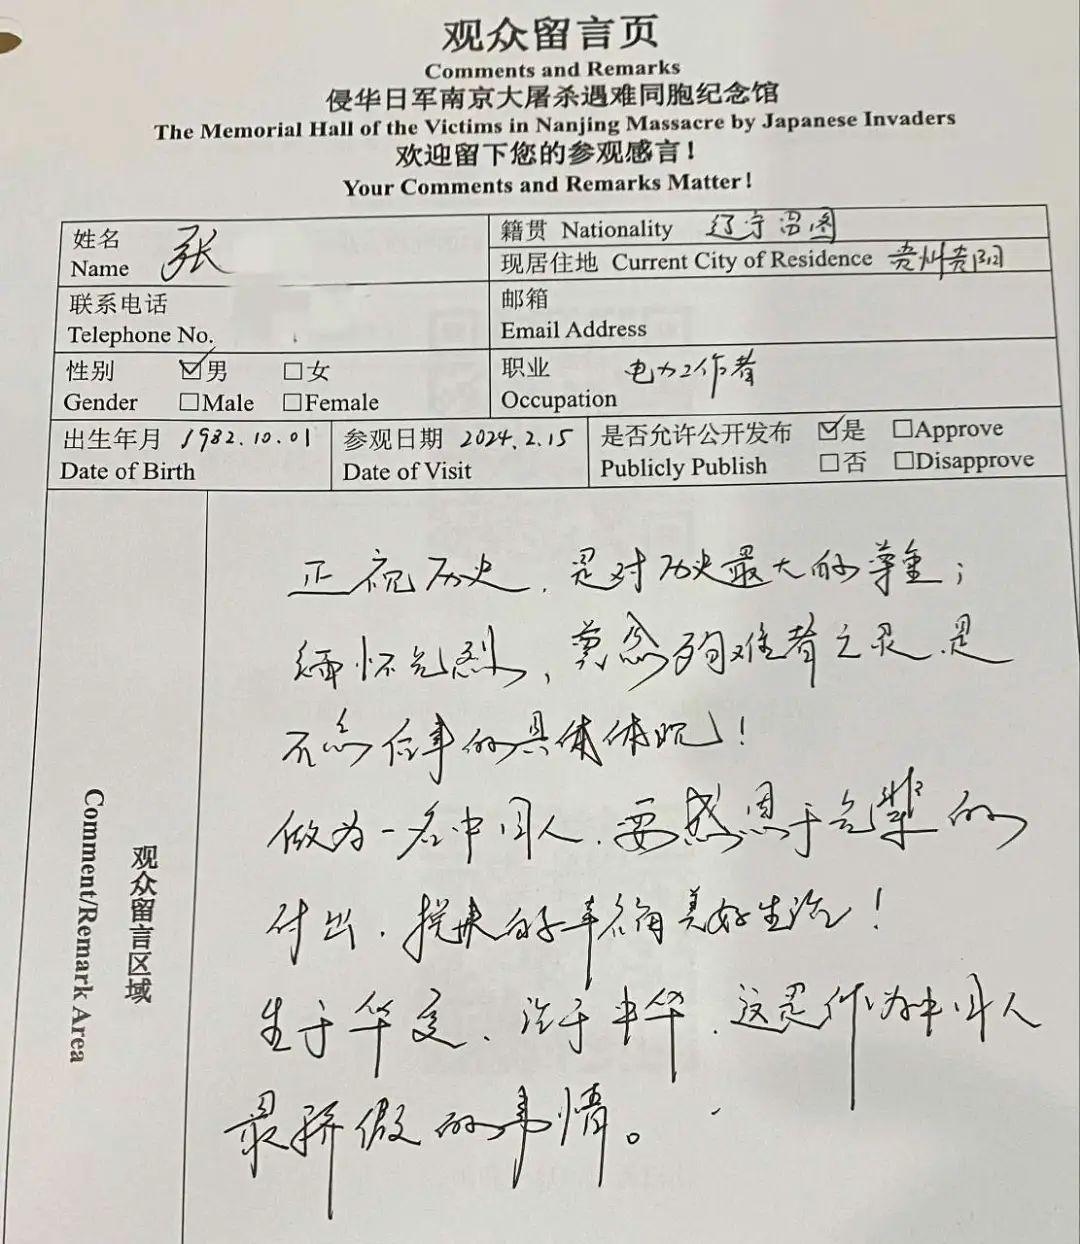 观众留言页
Comments and Remarks
侵华日军南京大屠杀遇难同胞纪念馆
The Memorial Hall of the Victims in Nanjing Massacre by Japanese Invaders
欢迎留下您的参观感言！
Your Comments and Remarks Matter!
姓名 张
Name
籍贯 Nationality 辽宁昌图
现居住地 Current City of Residence 贵州贵阳
联系电话
Telephone No.
邮箱
Email Address
性别 ☑男 □女
Gender □Male □Female
职业 电力工作者
Occupation
出生年月 1982.10.01
Date of Birth
参观日期 2024.2.15
Date of Visit
是否允许公开发布 ☑是 □Approve
Publicly Publish □否 □Disapprove
观众留言区域
Comment/Remark Area
正视历史，是对历史最大的尊重；
缅怀先烈，奠念殉难者之灵，是
不忘往事的具体体现！
做为一名中国人，要感恩于先辈的
付出，换来的幸福美好生活！
生于华夏、活于中华，这是作为中国人
最骄傲的事情。